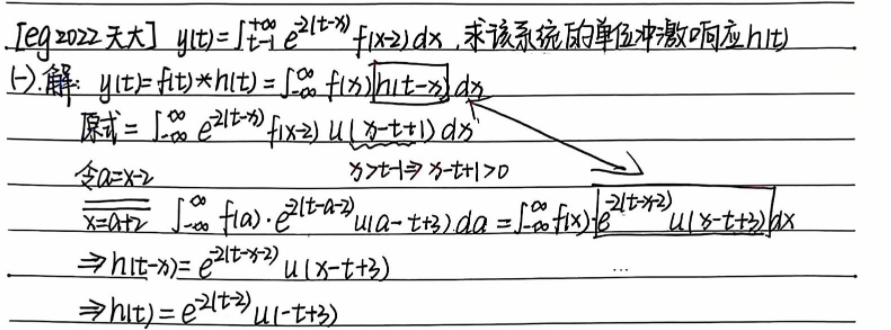 [eg 2022 天大] y(t)=∫_{t-1}^{+∞} e^{-2(t-x)} f(x-2) dx ,求该系统的单位冲激响应h(t)
(一).解: y(t)=f(t)*h(t)=∫_{-∞}^{∞} f(x) h(t-x) dx
原式=∫_{-∞}^{∞} e^{-2(t-x)} f(x-2) u(x-t+1) dx
令a=x-2 x>t-1⇒x-t+1>0
x=a+2 ∫_{-∞}^{∞} f(a)·e^{-2(t-a-2)} u(a-t+3) da = ∫_{-∞}^{∞} f(x)·e^{-2(t-x-2)} u(x-t+3) dx
⇒h(t-x)=e^{-2(t-x-2)} u(x-t+3)
...
⇒h(t)=e^{-2(t-2)} u(-t+3)